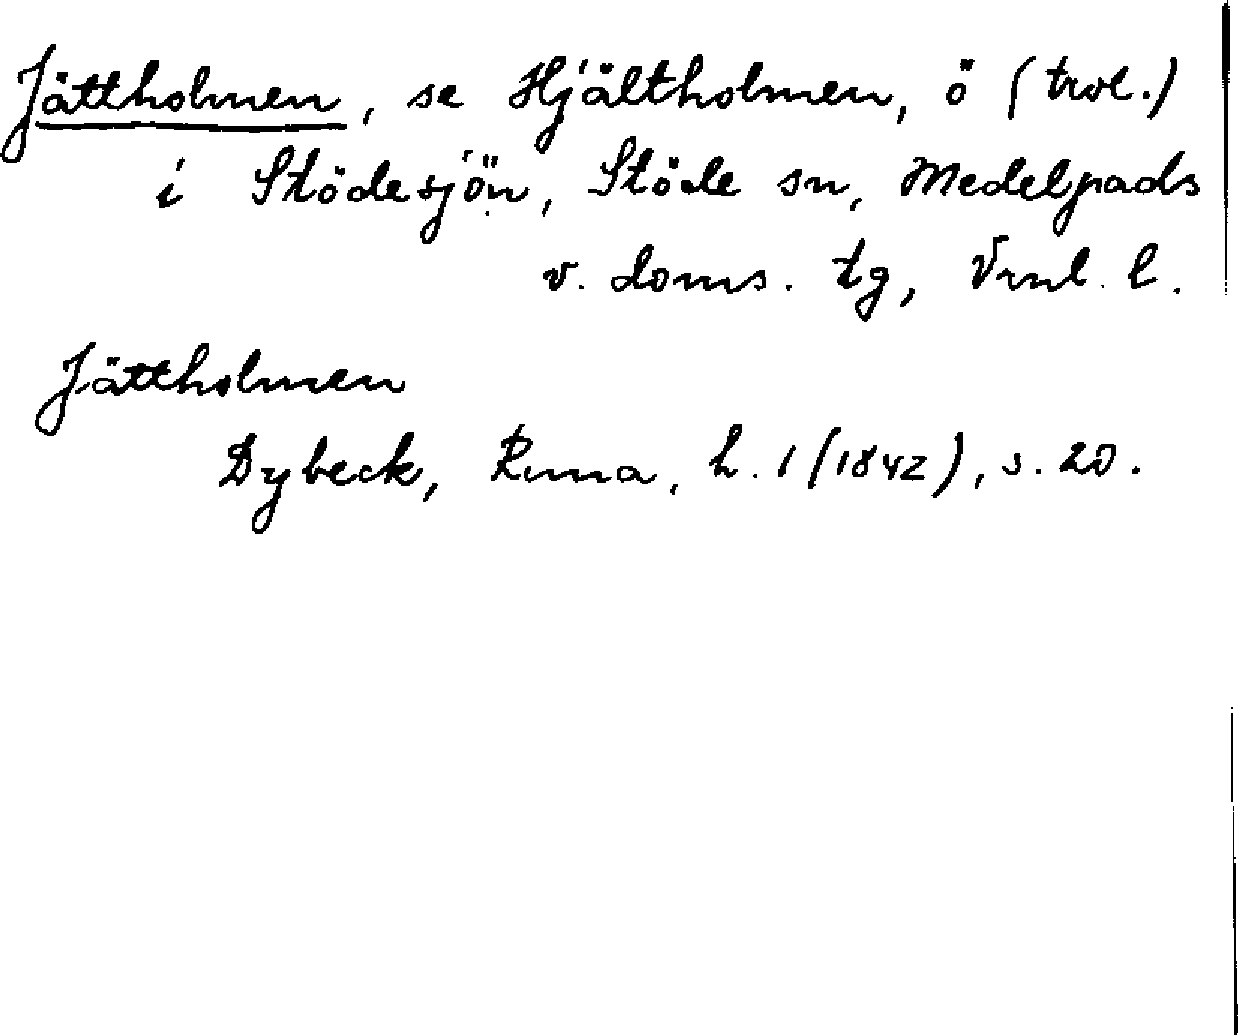 Jättholmen, se Hjältholmen, ö (trol.)
i Stödesjön, Stöde sn, Medelpads
v. doms. tg, Vrnl. l.
Jättholmen
Dybeck, Runa, h. 1 (1842), s. 20.